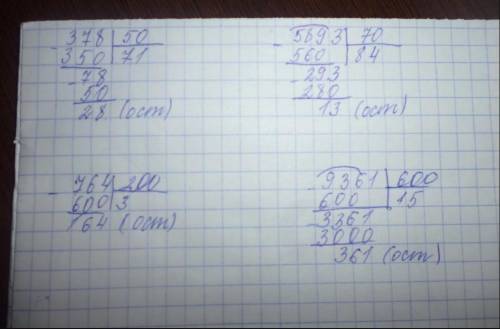 378 50
350 71
78
50
28 (ост)
5693 70
560 84
293
280
13 (ост)
764 200
600 3
164 (ост)
9361 600
600 15
3361
3000
361 (ост)